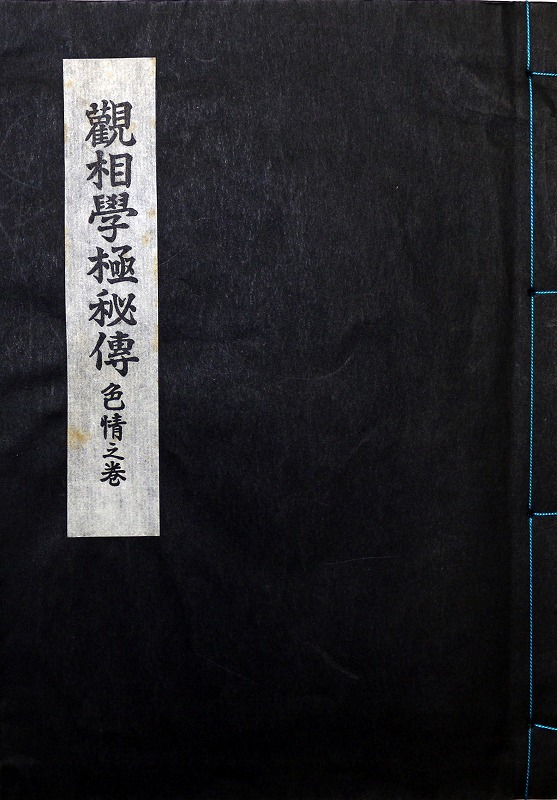 觀相學極秘傳 色情之卷